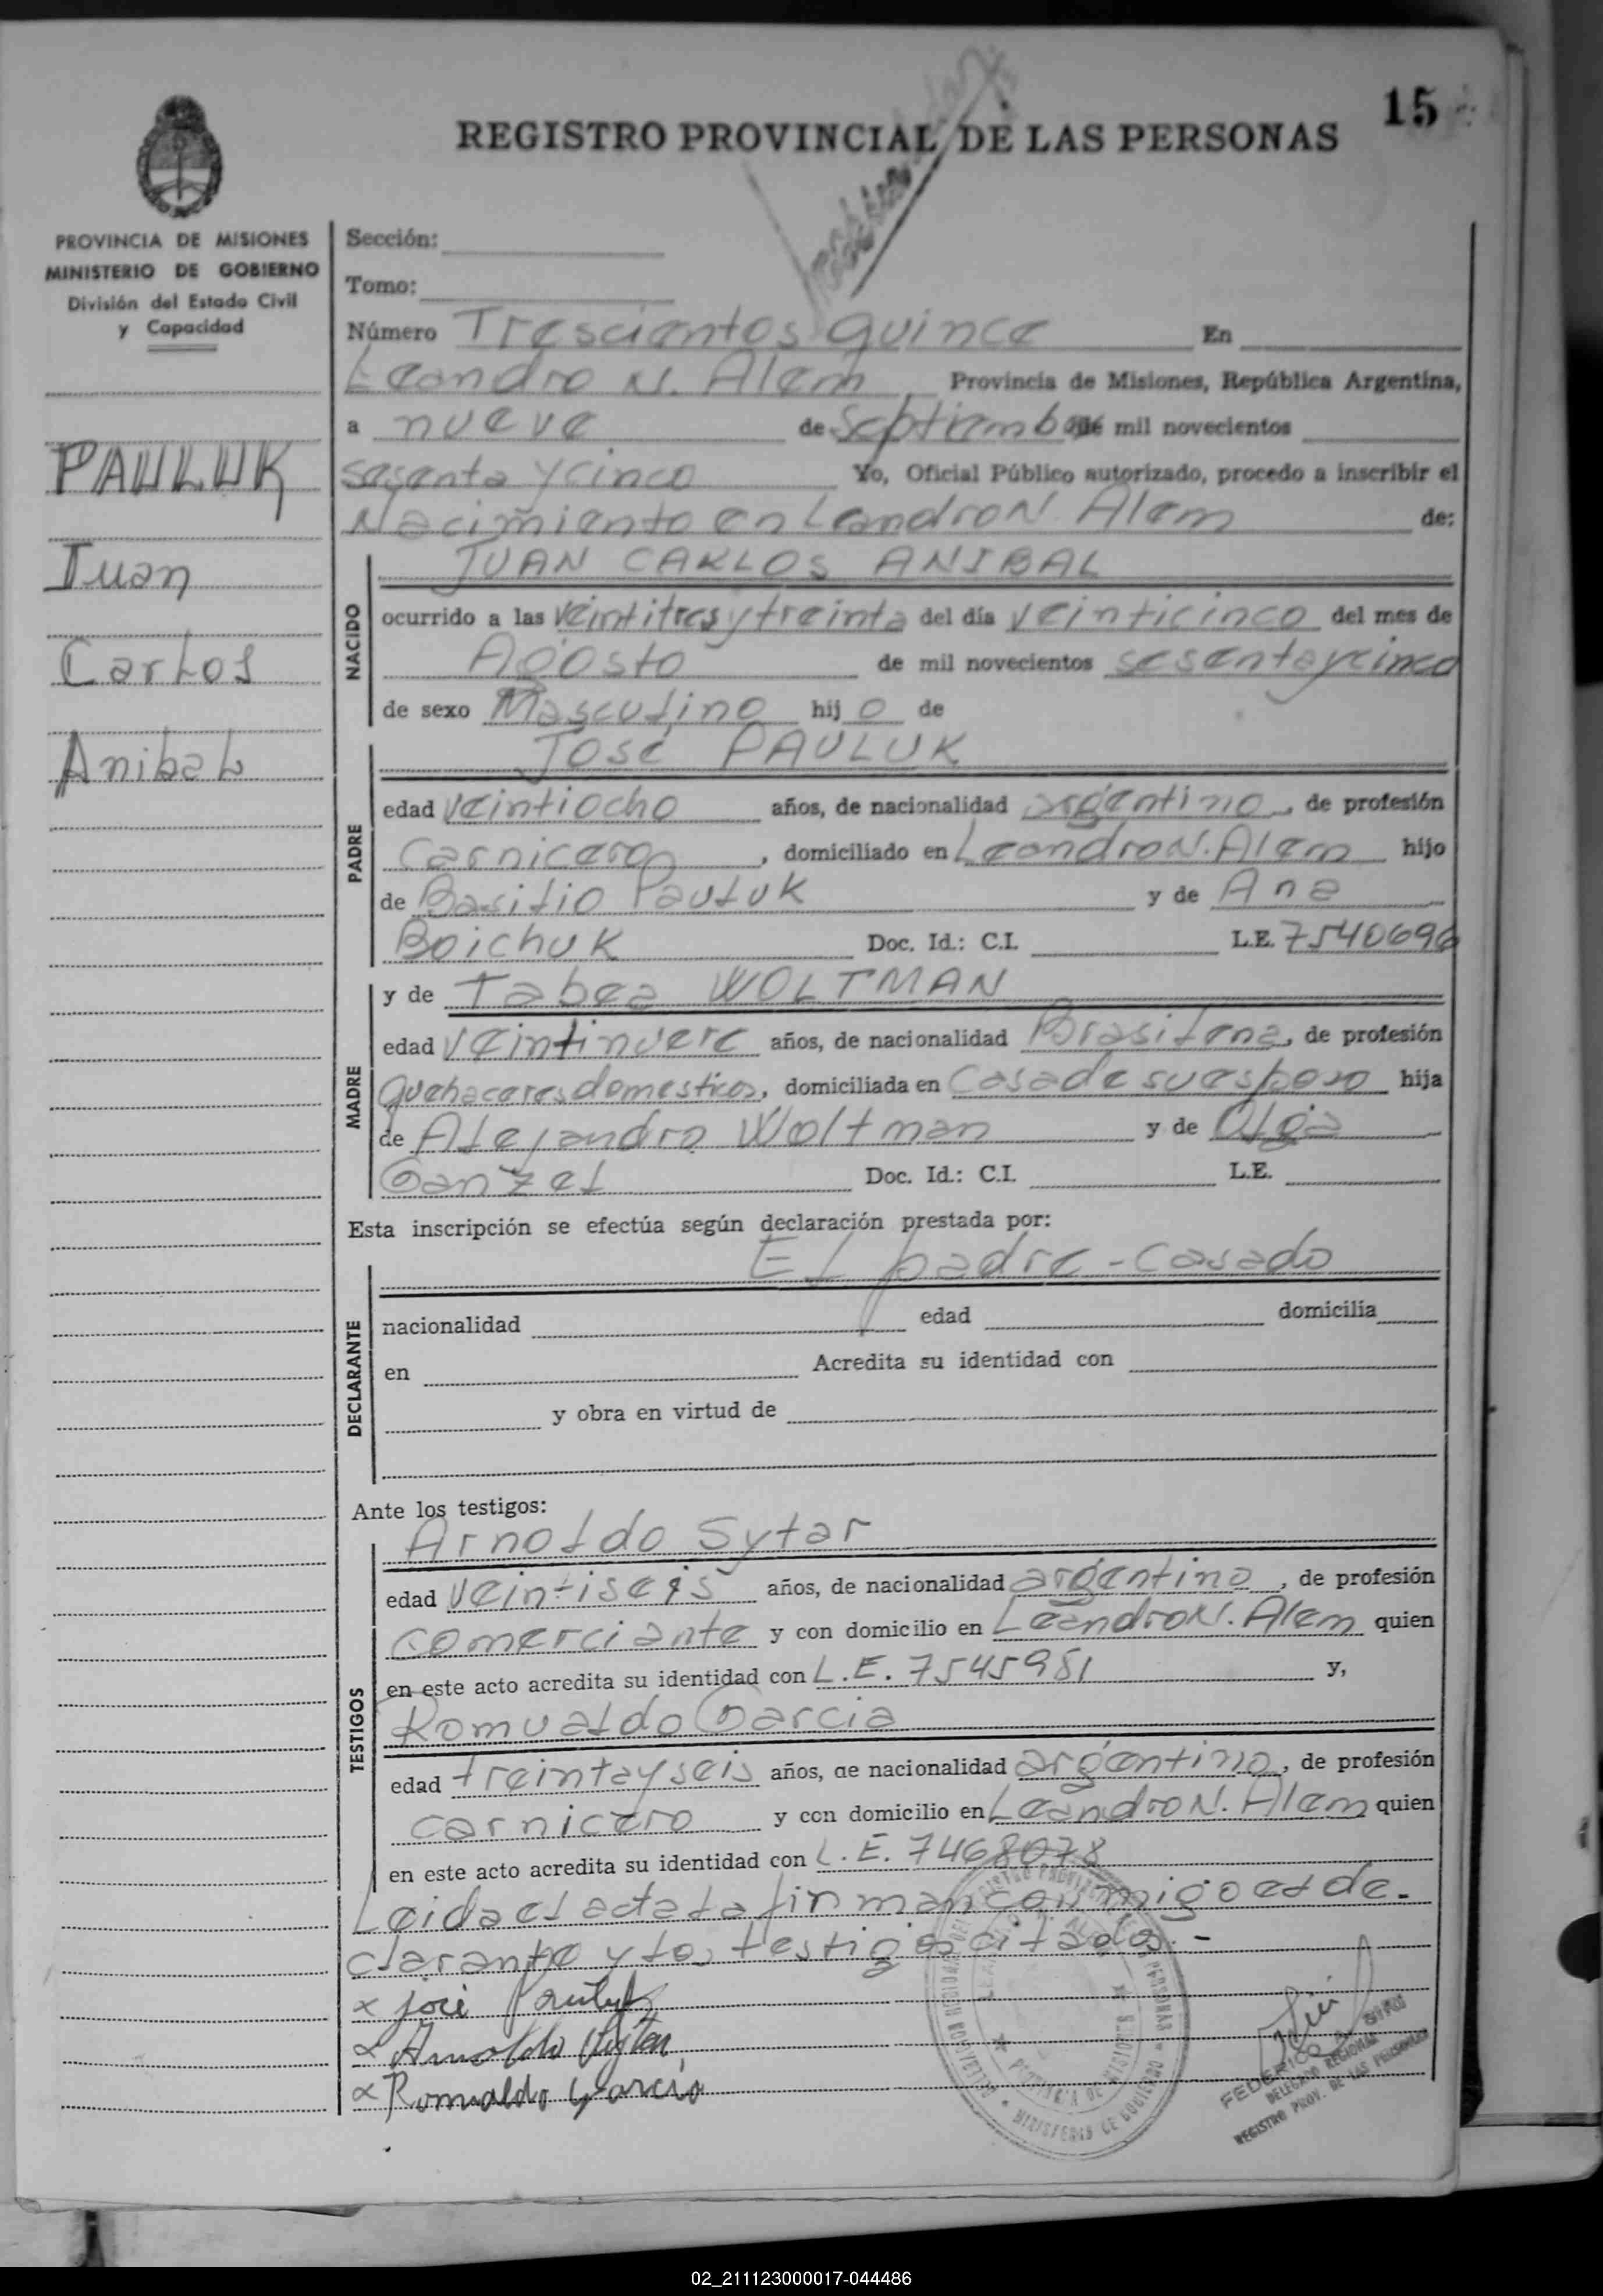 15
REGISTRO PROVINCIAL DE LAS PERSONAS
PROVINCIA DE MISIONES
MINISTERIO DE GOBIERNO
División del Estado Civil
y Capacidad
PAULUK
Juan
Carlos
Anibal
Sección:
Tomo:
Número Trescientos quince En
Leandro N. Alem Provincia de Misiones, República Argentina,
a nueve de Septiembre de mil novecientos
sesenta y cinco Yo, Oficial Público autorizado, procedo a inscribir el
Nacimiento en Leandro N. Alem de:
NACIDO
JUAN CARLOS ANIBAL
ocurrido a las veintitres y treinta del día veinticinco del mes de
Agosto de mil novecientos sesenta y cinco
de sexo Masculino hij o de
PADRE
José PAULUK
edad veintiocho años, de nacionalidad argentino, de profesión
Carnicero, domiciliado en Leandro N. Alem hijo
de Basilio Pauluk y de Ana
Boichuk Doc. Id.: C.I. L.E. 7540696
MADRE
y de Tabea WOLTMAN
edad veintinueve años, de nacionalidad Brasilena, de profesión
quehaceres domesticos, domiciliada en Casa de su esposo hija
de Alejandro Woltman y de Olga
Ganzel Doc. Id.: C.I. L.E.
Esta inscripción se efectúa según declaración prestada por:
DECLARANTE
El padre - casado
nacionalidad edad domicilia
en Acredita su identidad con
y obra en virtud de
Ante los testigos:
TESTIGOS
Arnoldo Sytar
edad veintiseis años, de nacionalidad argentino, de profesión
comerciante y con domicilio en Leandro N. Alem quien
en este acto acredita su identidad con L.E. 7545981 y,
Romualdo Garcia
edad treinta y seis años, de nacionalidad argentino, de profesión
carnicero y con domicilio en Leandro N. Alem quien
en este acto acredita su identidad con L.E. 7468078
Leida el acta la firman conmigo el de-
clarante y los testigos citados.-
x José Pauluk
x Arnoldo
x Romualdo Garcia
PROVINCIA DE MISIONES
MINISTERIO DE GOBIERNO
FEDERICO
DELEGADO REGIONAL
REGISTRO PROV. DE LAS PERSONAS
02_211123000017-044486